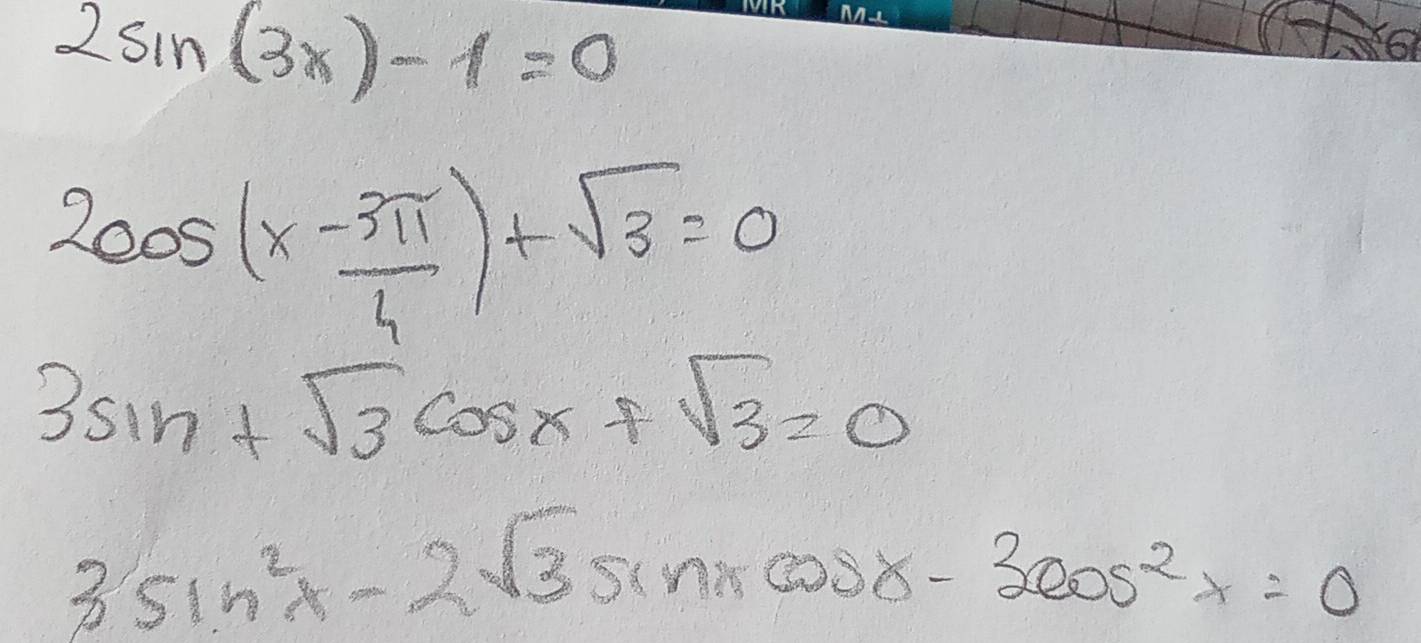 MR M+
2sin(3x)-1=0
2cos(x-3π/4)+√3=0
3sin+√3cosx+√3=0
3sin²x-2√3sinxcosx-3cos²x=0